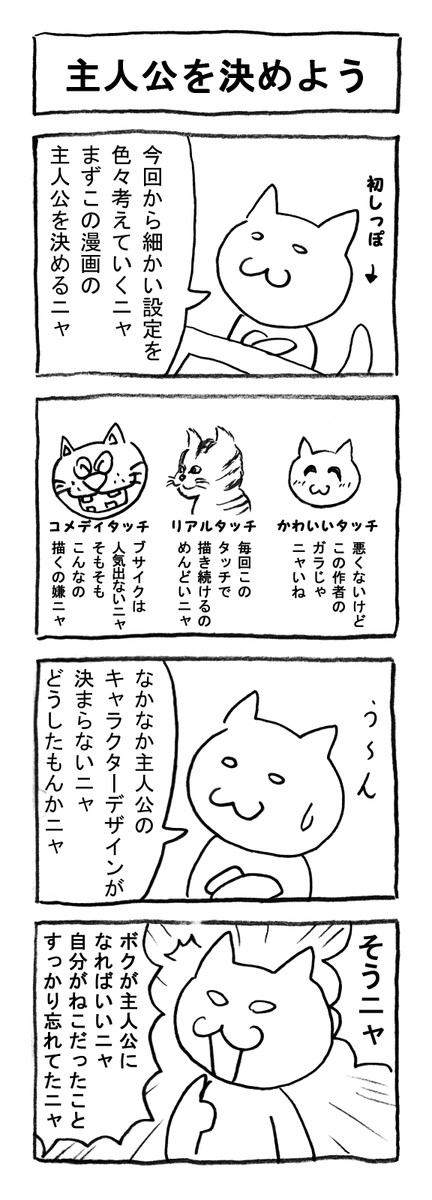 主人公を決めよう
初しっぽ
今回から細かい設定を
色々考えていくニャ
まずこの漫画の
主人公を決めるニャ
かわいいタッチ
悪くないけど
この作者の
ガラじゃ
ニャいね
リアルタッチ
毎回この
タッチで
描き続けるの
めんどいニャ
コメディタッチ
ブサイクは
人気出ないニャ
そもそも
こんなの
描くの嫌ニャ
う〜ん
なかなか主人公の
キャラクターデザインが
決まらないニャ
どうしたもんかニャ
そうニャ
ボクが主人公に
なればいいニャ
自分がねこだったこと
すっかり忘れてたニャ